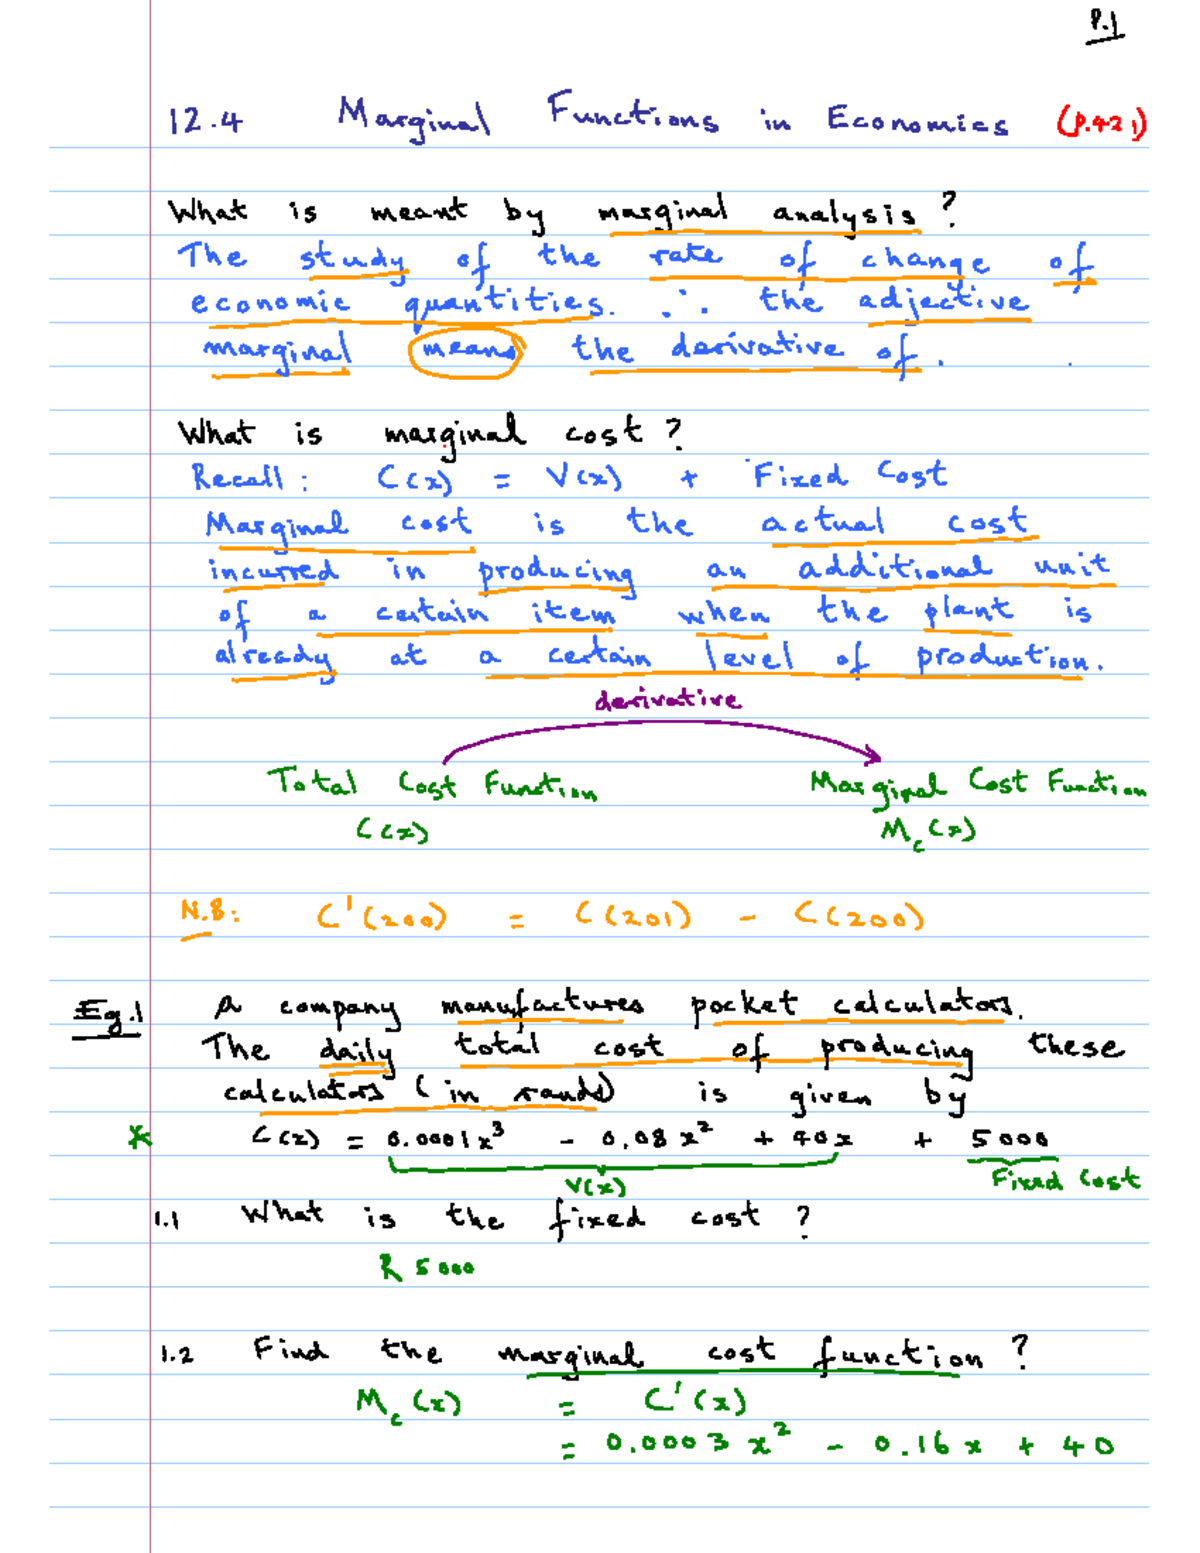 P.1
12.4 Marginal Functions in Economics (P.421)
What is meant by marginal analysis?
The study of the rate of change of
economic quantities. ∴ the adjective
marginal means the derivative of . .
What is marginal cost?
Recall: C(x) = V(x) + Fixed Cost
Marginal cost is the actual cost
incurred in producing an additional unit
of a certain item when the plant is
already at a certain level of production.
derivative
Total Cost Function Marginal Cost Function
C(x) M_c(x)
N.B: C'(200) = C(201) - C(200)
Eg.1 A company manufactures pocket calculators.
The daily total cost of producing these
calculators (in rands) is given by
* C(x) = 0.0001x³ - 0.08x² + 40x + 5000
V(x) Fixed Cost
1.1 What is the fixed cost?
R 5000
1.2 Find the marginal cost function?
M_c(x) = C'(x)
= 0.0003x² - 0.16x + 40